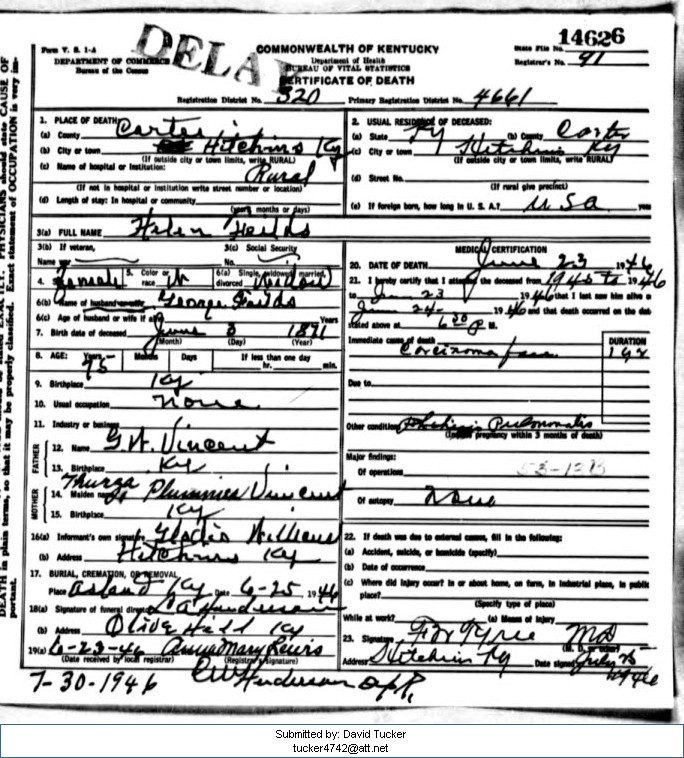 DEATH in plain terms, so that it may be properly classified. Exact statement of OCCUPATION is very important. PHYSICIANS should state CAUSE OF
Form V. S. 1-A
DEPARTMENT OF COMMERCE
Bureau of the Census
DELAY
COMMONWEALTH OF KENTUCKY
Department of Health
BUREAU OF VITAL STATISTICS
CERTIFICATE OF DEATH
14626
State File No.
Registrar's No. 91
Registration District No. 320 Primary Registration District No. 4661
1. PLACE OF DEATH
(a) County Carter
(b) City or town Hitchins Ky
(If outside city or town limits, write RURAL)
(c) Name of hospital or institution: Rural
(If not in hospital or institution write street number or location)
(d) Length of stay: In hospital or community
(years, months or days)
2. USUAL RESIDENCE OF DECEASED:
(a) State Ky (b) County Carter
(c) City or town Hitchins Ky
(If outside city or town limits, write RURAL)
(d) Street No.
(If rural give precinct)
(e) If foreign born, how long in U. S. A.? USA years
3(a) FULL NAME Helen Feilds
3(b) If veteran,
Name war
3(c) Social Security
No.
4. Female 5. Color or race W 6(a) Single, widowed, married, divorced
6(b) Name of husband or wife George Fields
6(c) Age of husband or wife if alive Years
7. Birth date of deceased June 3 1871
(Month) (Day) (Year)
8. AGE: Years 75 Months Days If less than one day
hr. min.
9. Birthplace Ky
10. Usual occupation None
11. Industry or business
FATHER
12. Name G. W. Vincent
13. Birthplace Ky
MOTHER
14. Maiden name Thurza Vincent
15. Birthplace Ky
16(a) Informant's own signature Williams
(b) Address Hitchins Ky
17. BURIAL, CREMATION, OR REMOVAL
Place Ky Date 6-25, 1946
18(a) Signature of funeral director
(b) Address Olive Hill Ky
19(a) 6-23-46 Annie Mary Lewis
(Date received by local registrar) (Registrar's signature)
7-30-1946 Henderson
MEDICAL CERTIFICATION
20. DATE OF DEATH June 23 1946
21. I hereby certify that I attended the deceased from 1945 to 1946
to June 23 1946 that I last saw him alive on
June 24 1946 and that death occurred on the date
stated above at 6:30 P. M.
Immediate cause of death
DURATION
Due to
Other condition Pulmonalis
(Include pregnancy within 3 months of death)
Major findings:
Of operations
Of autopsy None
22. If death was due to external causes, fill in the following:
(a) Accident, suicide, or homicide (specify)
(b) Date of occurrence
(c) Where did injury occur? In or about home, on farm, in industrial place, in public
place?
(Specify type of place)
While at work? (e) Means of injury
23. Signature Tyree MD
(M. D. or other)
Address Hitchins Ky Date signed July 25
1946
Submitted by: David Tucker
tucker4742@att.net